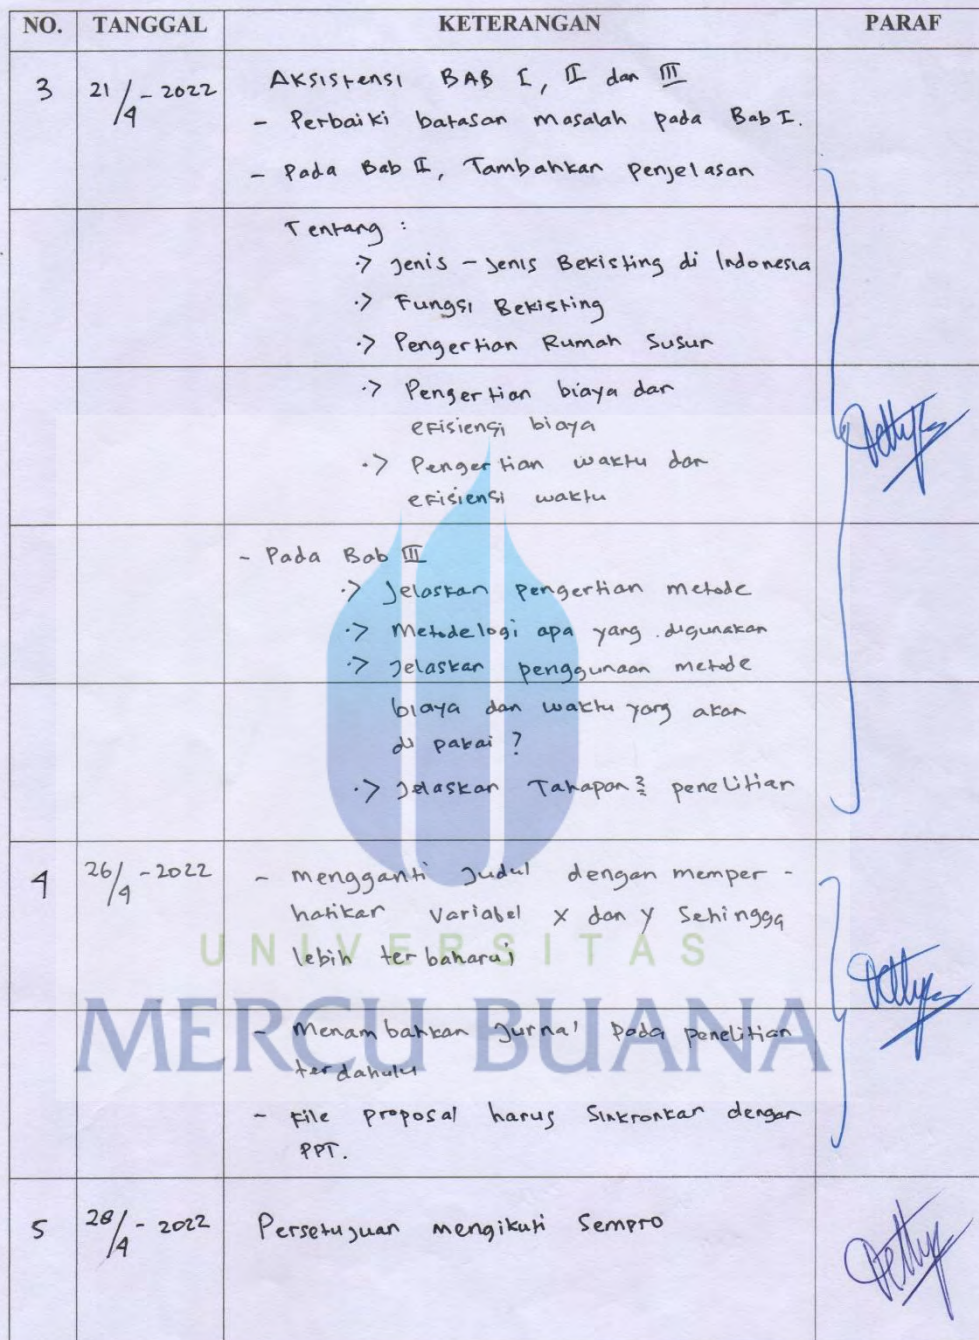 NO. TANGGAL KETERANGAN PARAF
3 21/4 - 2022 Aksistensi BAB I, II dan III
- Perbaiki batasan masalah pada Bab I.
- Pada Bab II, Tambahkan Penjelasan
Tentang :
·> Jenis - Jenis Bekisting di Indonesia
·> Fungsi Bekisting
·> Pengertian Rumah Susun
·> Pengertian biaya dan
efisiensi biaya
·> Pengertian waktu dan
efisiensi waktu
- Pada Bab III
·> Jelaskan pengertian metode
·> Metodelogi apa yang digunakan
·> Jelaskan penggunaan metode
biaya dan waktu yang akan
di pakai ?
·> Jelaskan Tahapan2 penelitian
4 26/4 - 2022 - mengganti Judul dengan memper -
hatikan Variabel X dan Y Sehingga
lebih terbaharui
UNIVERSITAS
MERCU BUANA
- Menambahkan Jurnal pada penelitian
terdahulu
- File proposal harus Sinkronkan dengan
PPT.
5 28/4 - 2022 Persetujuan mengikuti Sempro